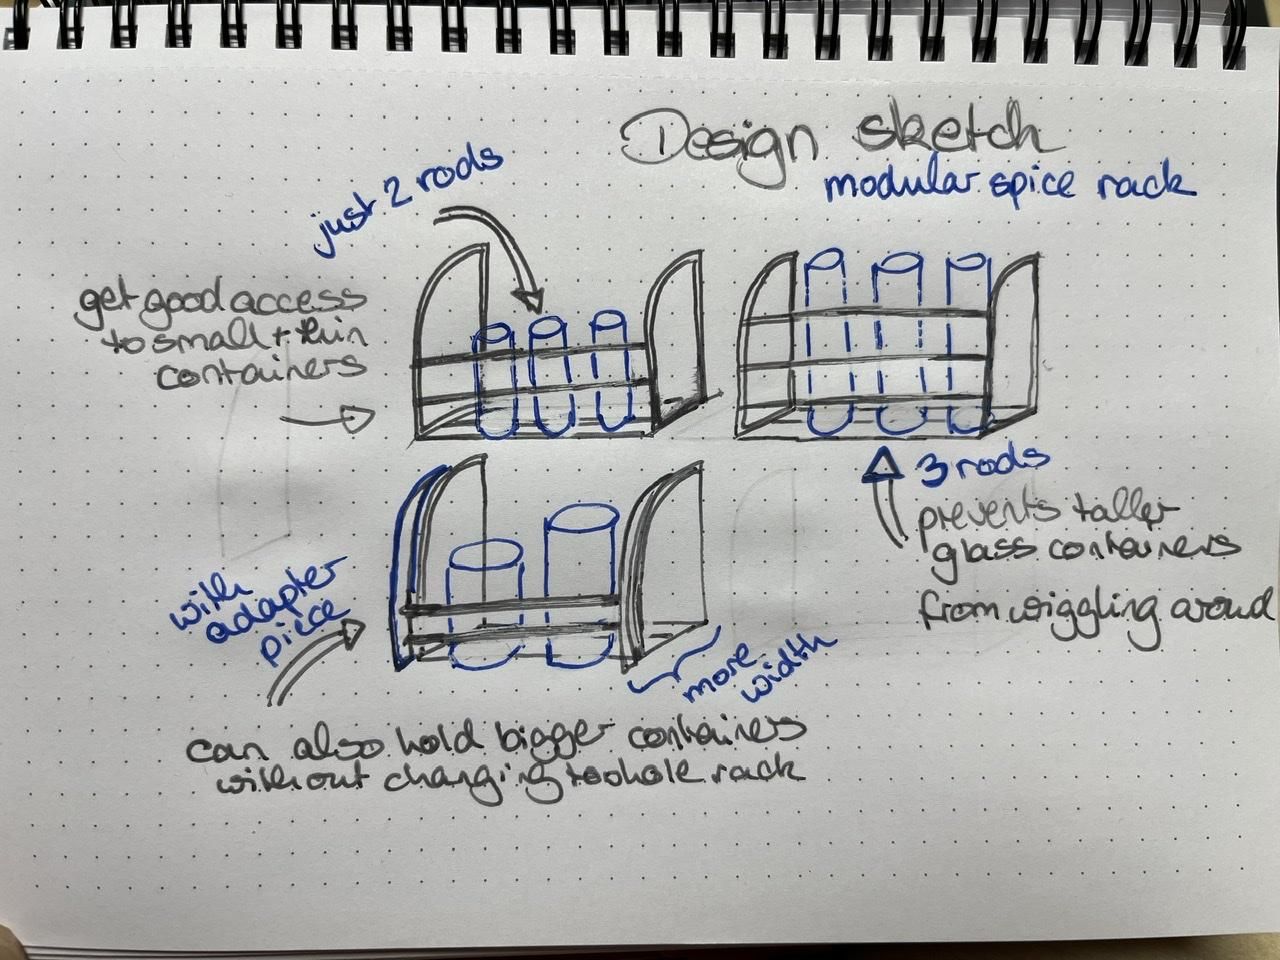 Design sketch
modular spice rack
just 2 rods
get good access
to small + thin
containers
3 rods
prevents taller
glass containers
from wiggling around
with
adapter
piece
more
width
can also hold bigger containers
without changing whole rack